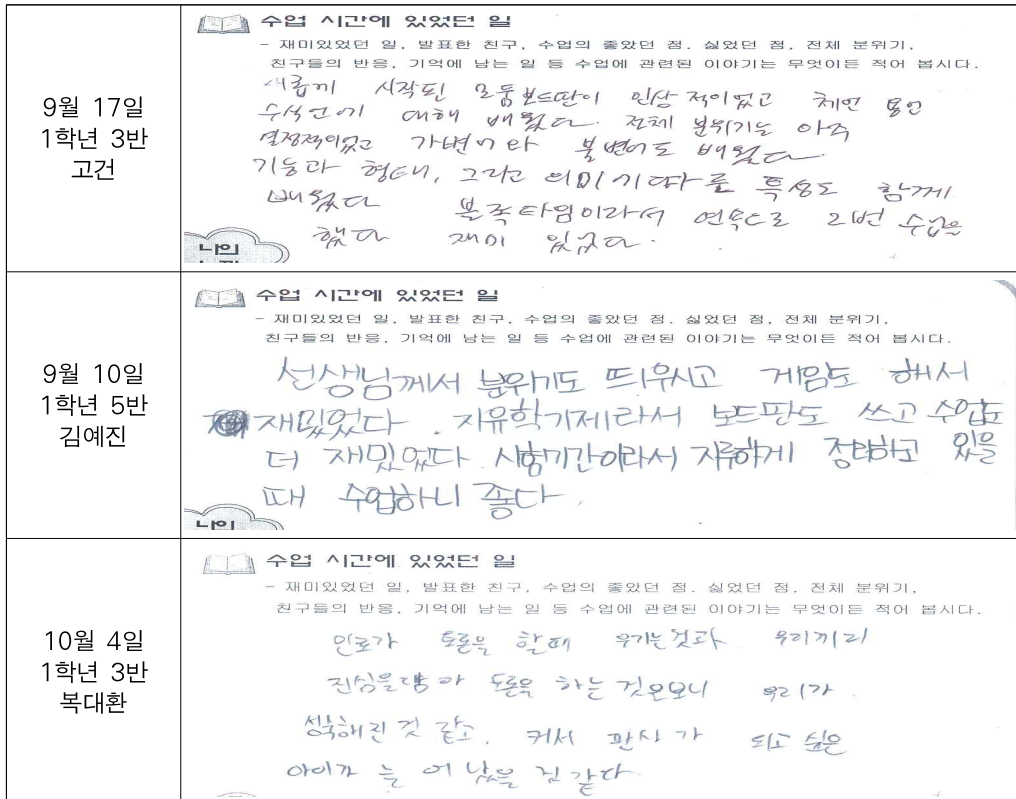 수업 시간에 있었던 일
- 재미있었던 일, 발표한 친구, 수업의 좋았던 점. 싫었던 점, 전체 분위기,
친구들의 반응, 기억에 남는 일 등 수업에 관련된 이야기는 무엇이든 적어 봅시다.
9월 17일
1학년 3반
고건
새롭게 시작된 모둠보드판이 인상적이었고 체언 용언
수식언에 대해 배웠다. 전체 분위기는 아주
열정적이었고 가변어와 불변어도 배웠다
기능과 형태, 그리고 의미 기따를 특성도 함께
배웠다 블록타임이라서 연속으로 2번 수업을
했다 재미 있었다.
나의
수업 시간에 있었던 일
- 재미있었던 일, 발표한 친구, 수업의 좋았던 점. 싫었던 점, 전체 분위기,
친구들의 반응, 기억에 남는 일 등 수업에 관련된 이야기는 무엇이든 적어 봅시다.
9월 10일
1학년 5반
김예진
선생님께서 분위기도 띄우시고 게임도 해서
재밌었다. 자유학기제라서 보드판도 쓰고 수업도
더 재밌었다 시험기간이라서 지루하게 정리하고 있을
때 수업하니 좋다.
나의
수업 시간에 있었던 일
- 재미있었던 일, 발표한 친구, 수업의 좋았던 점. 싫었던 점, 전체 분위기,
친구들의 반응, 기억에 남는 일 등 수업에 관련된 이야기는 무엇이든 적어 봅시다.
10월 4일
1학년 3반
복대환
토론을 할때 우기는것과 우리끼리
진심을담아 토론을 하는 것을보니 우리가
성숙해진 것 같고. 커서 판사가 되고 싶은
아이가 늘어 났을 것 같다.